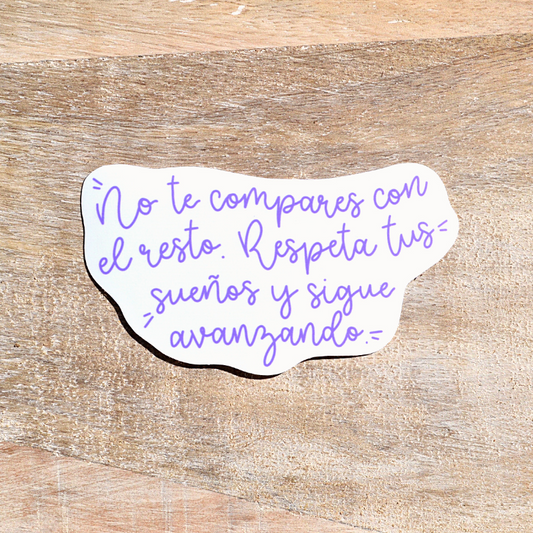 No te compares con
el resto. Respeta tus
sueños y sigue
avanzando.